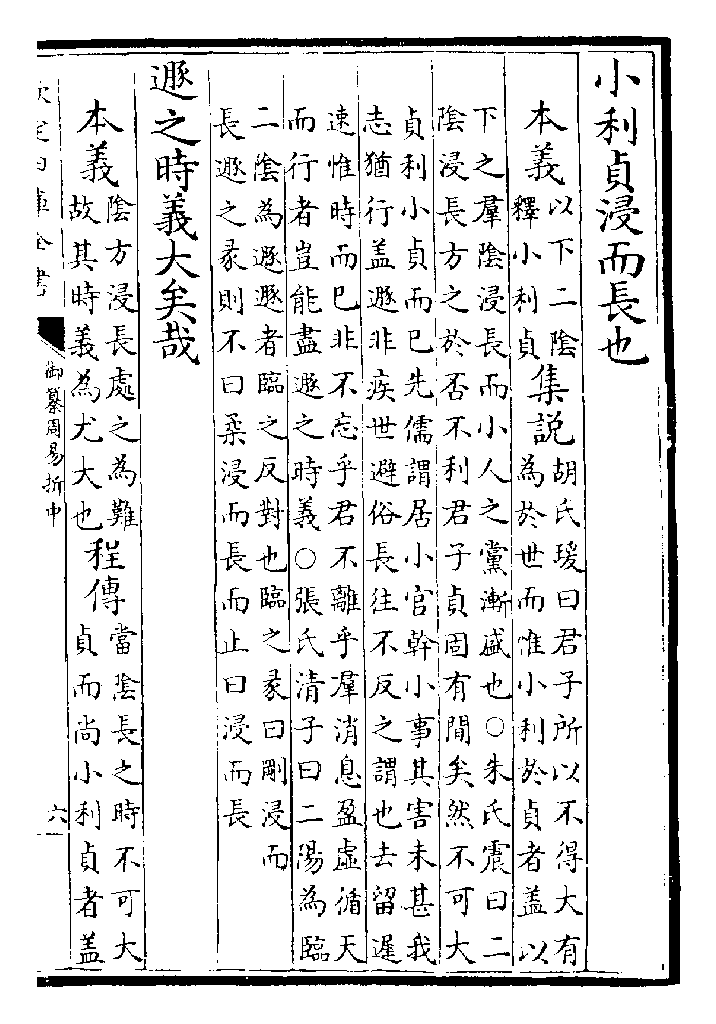 小利貞浸而長也
本義以下二陰釋小利貞集說胡氏瑗曰君子所以不得大有為於世而惟小利於貞者盖以
下之羣陰浸長而小人之黨漸盛也○朱氏震曰二
陰浸長方之於否不利君子貞固有間矣然不可大
貞利小貞而已先儒謂居小官幹小事其害未甚我
志猶行盖遯非疾世避俗長往不反之謂也去留遲
速惟時而已非不忘乎君不離乎羣消息盈虛循天
而行者豈能盡遯之時義○張氏清子曰二陽為臨
二陰為遯遯者臨之反對也臨之彖曰剛浸而
長遯之彖則不曰柔浸而長而止曰浸而長
遯之時義大矣哉
本義陰方浸長處之為難故其時義為尤大也程傳當陰長之時不可大貞而尚小利貞者盖
欽定四庫全書
御纂周易折中
六